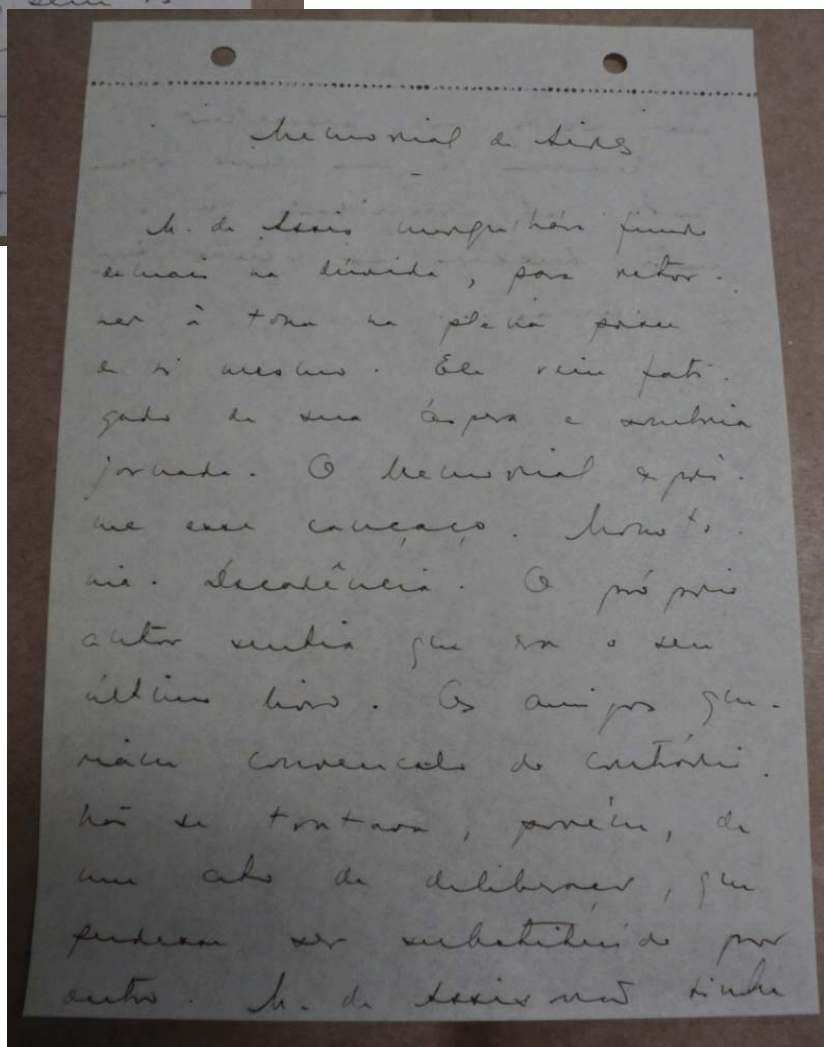 sem
Memorial de Aires
M. de Assis mergulhara fundo
demais na dúvida, para retor-
nar à tona na plena posse
de si mesmo. Ele vem fati-
gado de sua áspera e sombria
jornada. O Memorial expri-
me esse cansaço. Monoto-
nia. Decadência. O próprio
autor sentia que era o seu
último livro. Os amigos que-
riam convencê-lo do contrário.
Não se tratava, porém, de
um ato de deliberação, que
pudesse ser substituído por
outro. M. de Assis não tinha